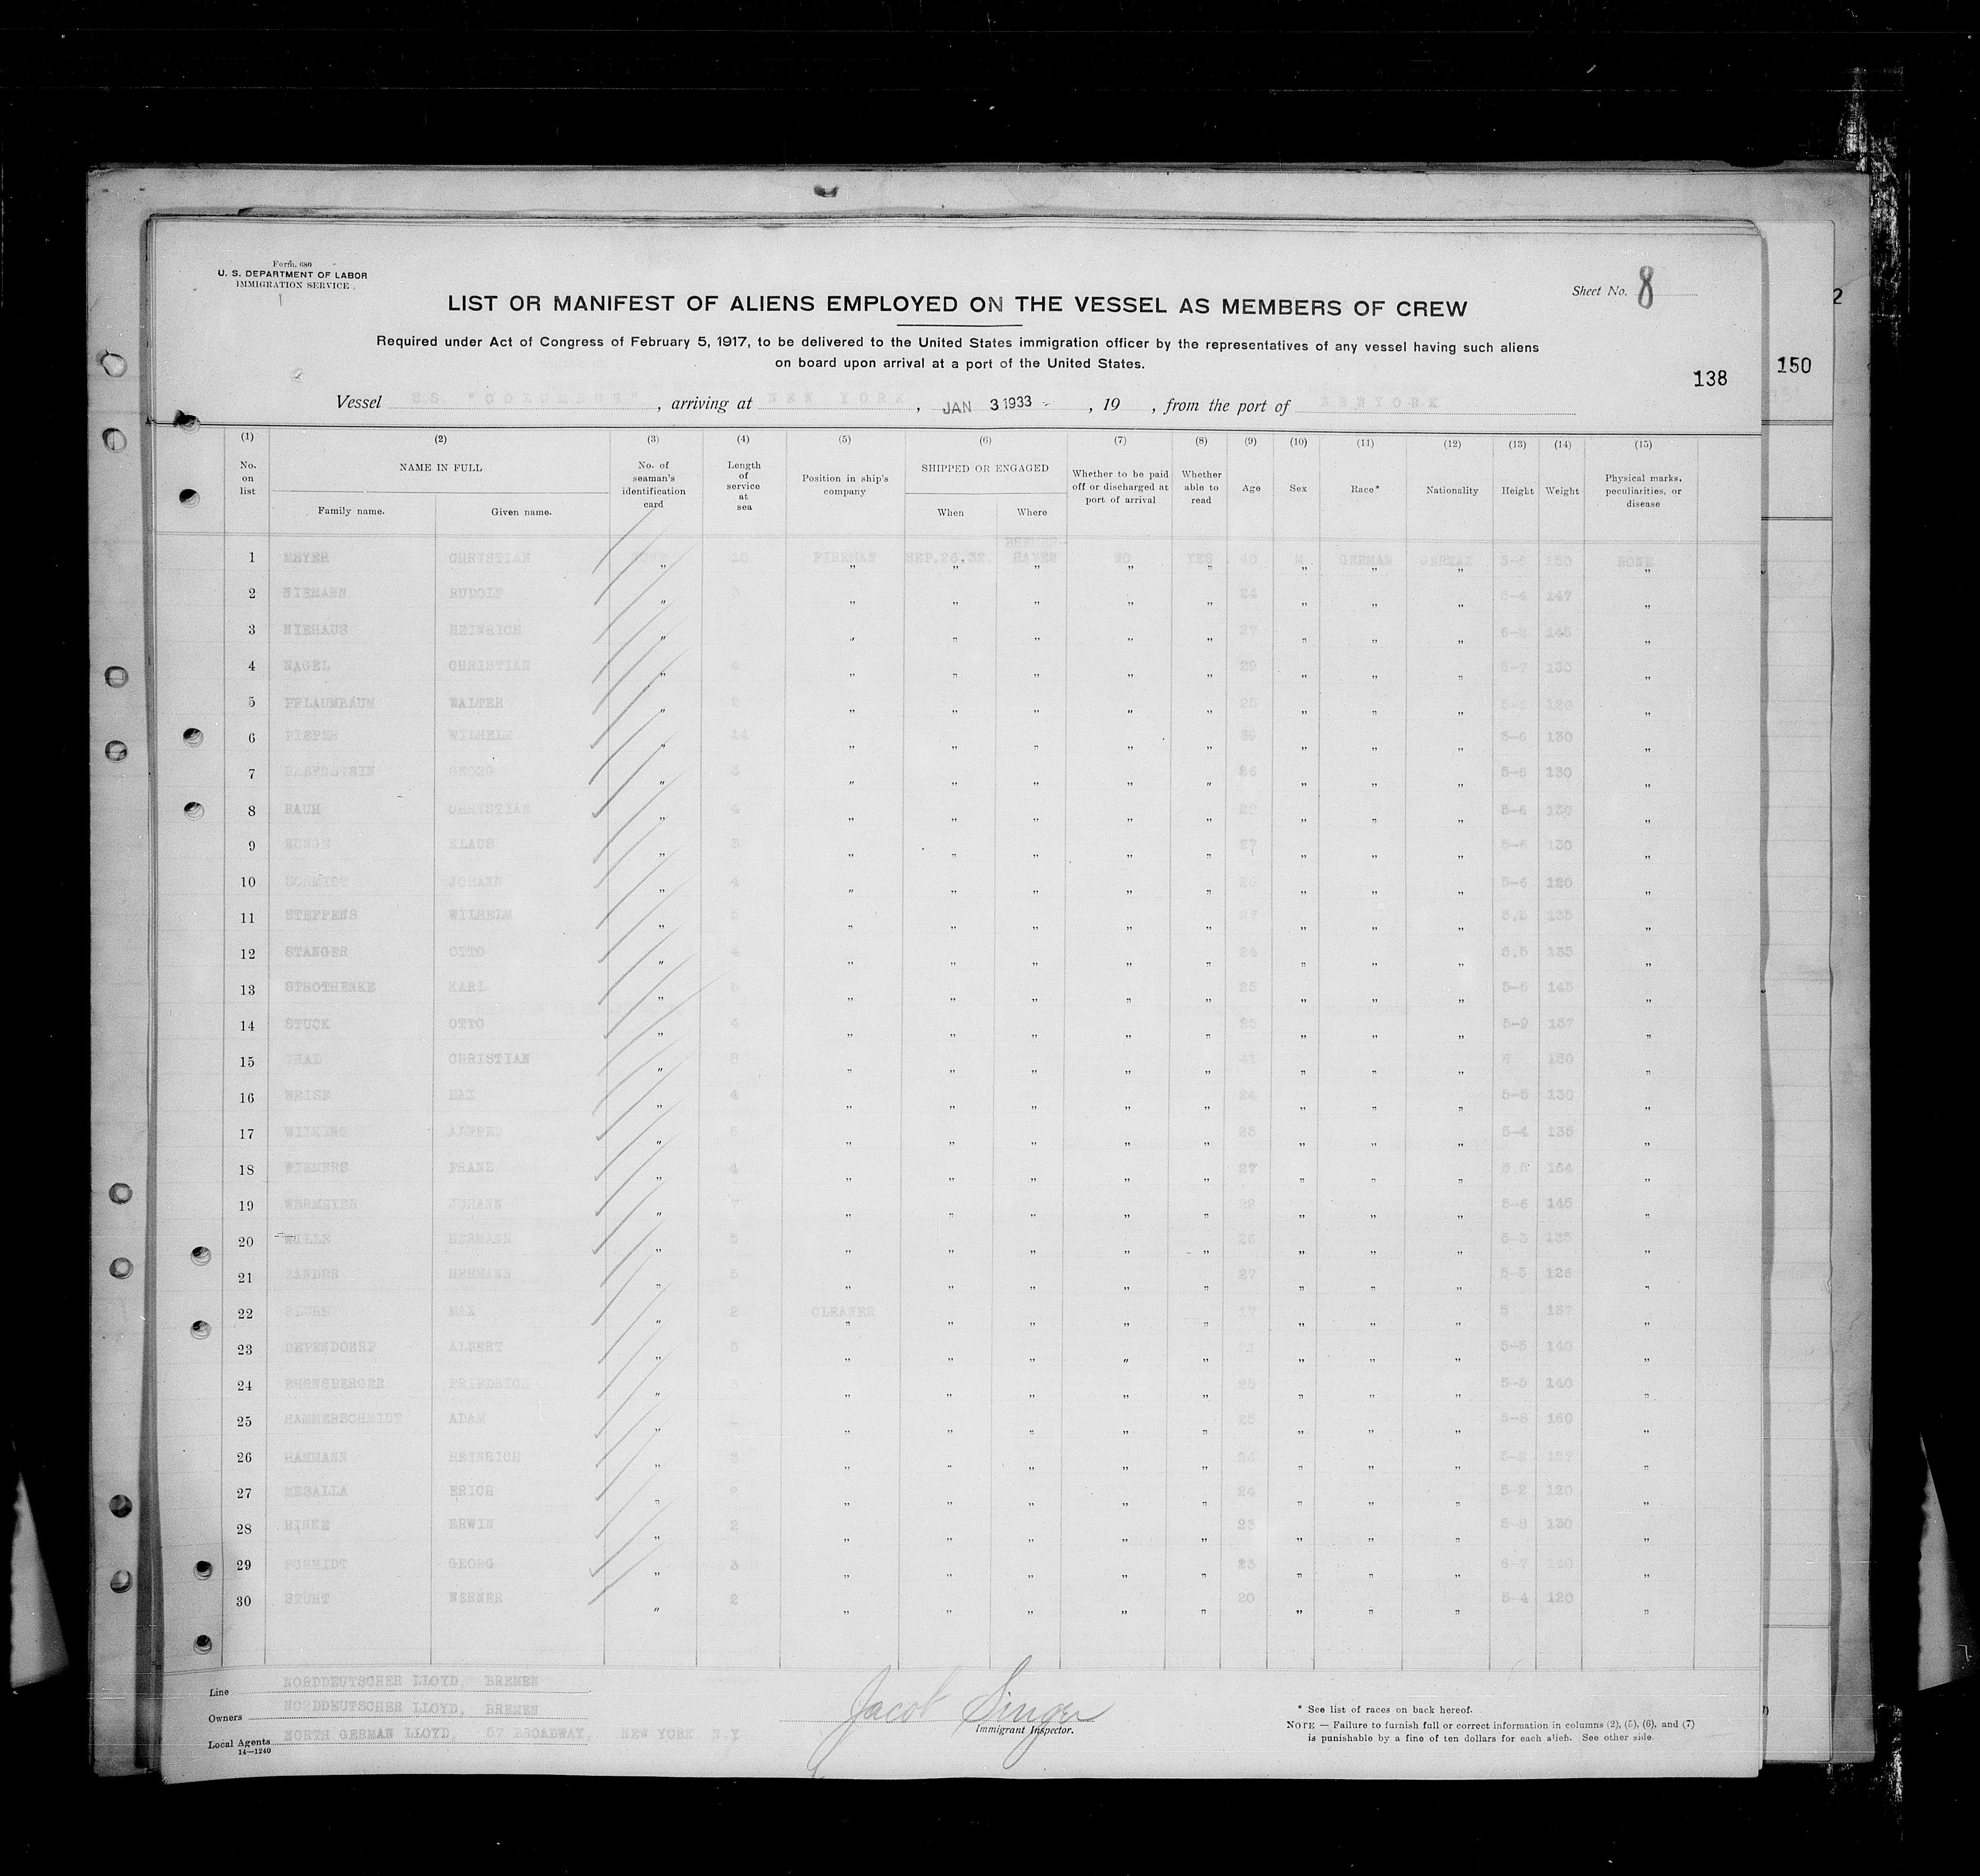 Form 680
U. S. DEPARTMENT OF LABOR
IMMIGRATION SERVICE
Sheet No. 8
LIST OR MANIFEST OF ALIENS EMPLOYED ON THE VESSEL AS MEMBERS OF CREW
Required under Act of Congress of February 5, 1917, to be delivered to the United States immigration officer by the representatives of any vessel having such aliens
on board upon arrival at a port of the United States.
138
150
2
Vessel S.S. "COLUMBUS", arriving at NEW YORK, JAN 3 1933, 19 , from the port of NEWYORK
(1) (2) (3) (4) (5) (6) (7) (8) (9) (10) (11) (12) (13) (14) (15)
No. on list
NAME IN FULL
Family name. Given name.
No. of seaman's identification card
Length of service at sea
Position in ship's company
SHIPPED OR ENGAGED
When Where
Whether to be paid off or discharged at port of arrival
Whether able to read
Age
Sex
Race*
Nationality
Height
Weight
Physical marks, peculiarities, or disease
1 MEYER CHRISTIAN NONE 20 FIREMAN SEP.26,32 BREMER- HAVEN NO YES 40 M GERMAN GERMAN 150 NONE
2 NIEMANN RUDOLF 3 " " " " " 24 " " " 5-4 147 "
3 NIEHAUS HEINRICH " " " " " 27 " " " 145 "
4 NAGEL CHRISTIAN " 4 " " " " " 29 " " " 5-7 135 "
5 PFLAUMBAUM WALTER " 2 " " " " " 25 " " " 120 "
6 PIEPER WILHELM " 14 " " " " " " " " 5-6 130 "
7 GEORG " 3 " " " " " 26 " " " 5-6 130 "
8 RAUH CHRISTIAN " 4 " " " " " " " " 5-6 130 "
9 KLAUS " 3 " " " " " 27 " " " 5-6 130 "
10 SCHMIDT JOHANN " 4 " " " " " 26 " " " 5-6 120 "
11 STEFFENS WILHELM " 5 " " " " " 27 " " " 5,5 135 "
12 STANGER OTTO " 4 " " " " " 24 " " " 5,5 135 "
13 STROTHENKE KARL " 5 " " " " " 25 " " " 5-5 145 "
14 STUCK OTTO " 4 " " " " " 25 " " " 5-9 157 "
15 THAL CHRISTIAN " 8 " " " " " " " " 6 180 "
16 WEISE MAX " 4 " " " " " 24 " " " 5-5 130 "
17 WILKING ALFRED " 5 " " " " " 25 " " " 5-4 136 "
18 WIEMERS FRANZ " 4 " " " " " 27 " " " 164 "
19 WERMEYER JOHANN " 7 " " " " " " " " 5-6 145 "
20 WILLE HERMANN " 5 " " " " " 26 " " " 135 "
21 ZANDER HERMANN " 5 " " " " " 27 " " " 5-5 126 "
22 MAX " 2 CLEANER " " " " 17 " " " 5 137 "
23 DEPENDOERP ALBERT " 5 " " " " " " " " 5-5 140 "
24 EHRNSBERGER FRIEDRICH " 3 " " " " " 25 " " " 5-5 140 "
25 HAMMERSCHMIDT ADAM " " " " " " 25 " " " 5-8 160 "
26 HAMMANN HEINRICH " 3 " " " " " 26 " " " 127 "
27 MESALLA ERICH " 2 " " " " " 24 " " " 5-2 120 "
28 ERWIN " 2 " " " " " 23 " " " 5-8 130 "
29 SCHMIDT GEORG " 3 " " " " " 23 " " " 140 "
30 STÜHT WERNER " 2 " " " " " 20 " " " 5-4 120 "
Line NORDDEUTSCHER LLOYD, BREMEN
Owners NORDDEUTSCHER LLOYD, BREMEN
Local Agents NORTH GERMAN LLOYD, 57 BROADWAY, NEW YORK N.Y.
14—1240
Jacob Singer
Immigrant Inspector.
* See list of races on back hereof.
NOTE — Failure to furnish full or correct information in columns (2), (5), (6), and (7)
is punishable by a fine of ten dollars for each alien. See other side.